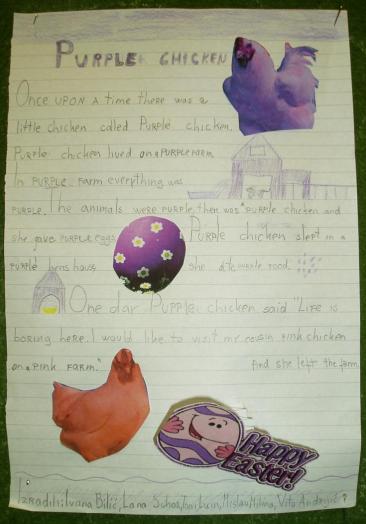 PURPLE CHICKEN
ONCE UPON A time there was a
little chicken called PURPLE chicken.
PURPLE chicken lived on a PURPLE FARM.
In PURPLE FARM everything was
PURPLE. The animals were PURPLE, then was "PURPLE chicken and
she gave PURPLE eggs. PURPLE chicken slept in a
PURPLE hens house. She ate PURPLE food.
One day PURPLE chicken said "LIFE is
boring here. I would like to visit my cousin pink chicken
on a PINK FARM." And she left the farm.
Happy
Easter!
Izradili: Ivana Bilić, Lana